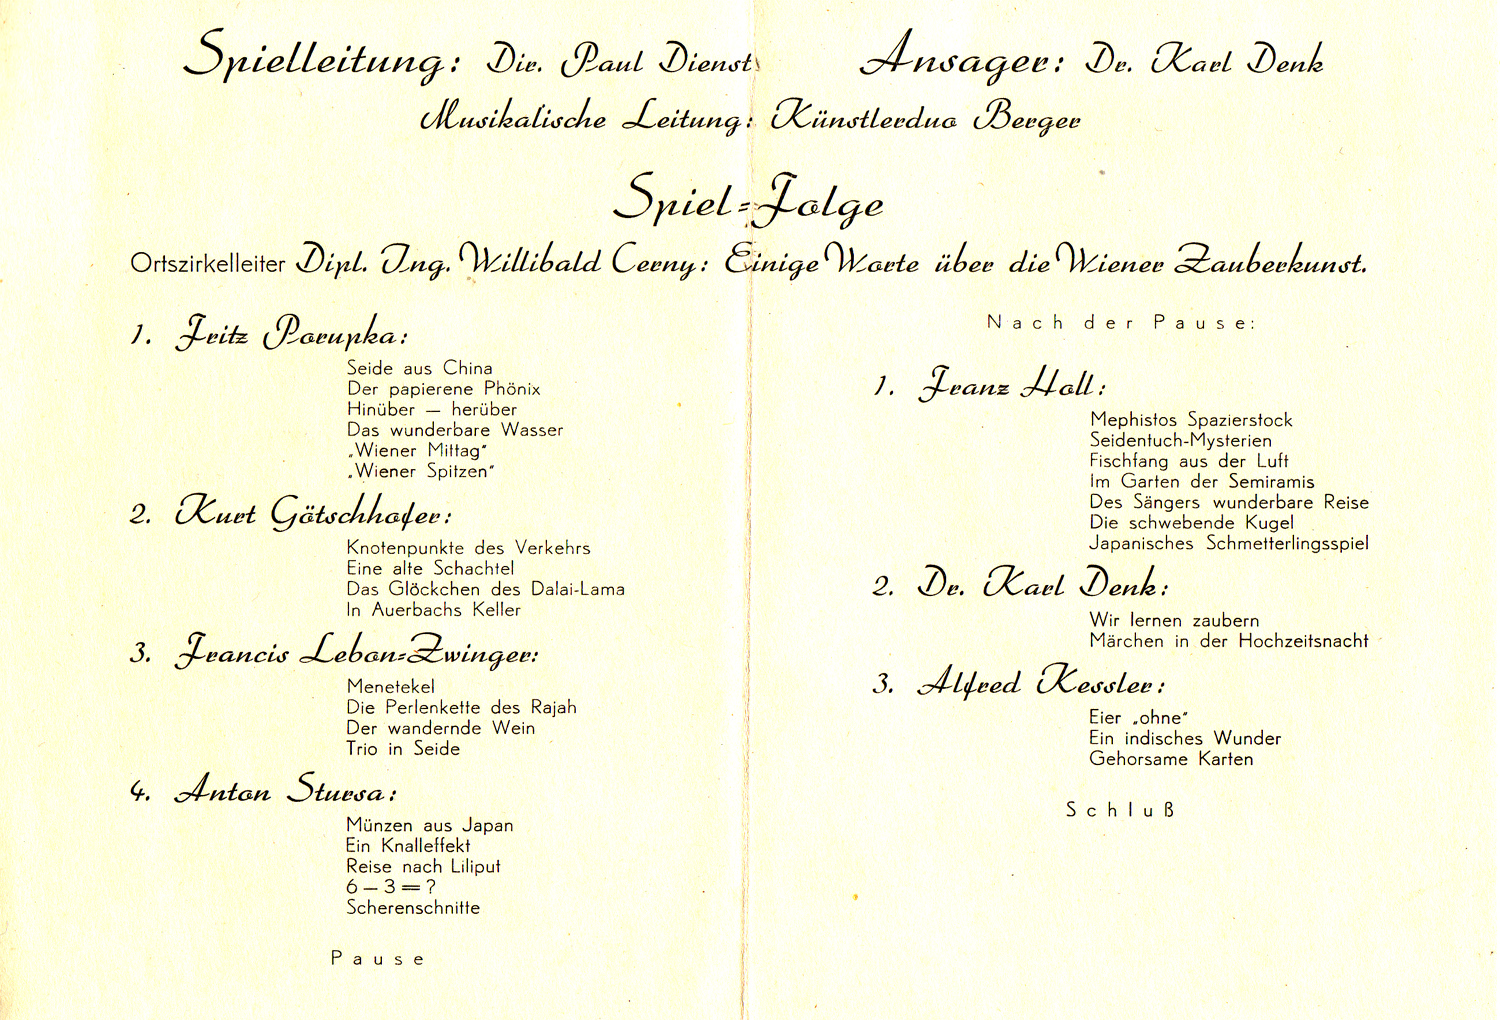 Spielleitung: Dir. Paul Dienst
Ansager: Dr. Karl Denk
Musikalische Leitung: Künstlerduo Berger
Spiel=Folge
Ortszirkelleiter Dipl. Ing. Willibald Cerny: Einige Worte über die Wiener Zauberkunst.
1. Fritz Porupka:
Seide aus China
Der papierene Phönix
Hinüber — herüber
Das wunderbare Wasser
„Wiener Mittag"
„Wiener Spitzen"
2. Kurt Götschhofer:
Knotenpunkte des Verkehrs
Eine alte Schachtel
Das Glöckchen des Dalai-Lama
In Auerbachs Keller
3. Francis Lebon=Zwinger:
Menetekel
Die Perlenkette des Rajah
Der wandernde Wein
Trio in Seide
4. Anton Stursa:
Münzen aus Japan
Ein Knalleffekt
Reise nach Liliput
6 – 3 = ?
Scherenschnitte
Pause
Nach der Pause:
1. Franz Holl:
Mephistos Spazierstock
Seidentuch-Mysterien
Fischfang aus der Luft
Im Garten der Semiramis
Des Sängers wunderbare Reise
Die schwebende Kugel
Japanisches Schmetterlingsspiel
2. Dr. Karl Denk:
Wir lernen zaubern
Märchen in der Hochzeitsnacht
3. Alfred Kessler:
Eier „ohne"
Ein indisches Wunder
Gehorsame Karten
Schluß